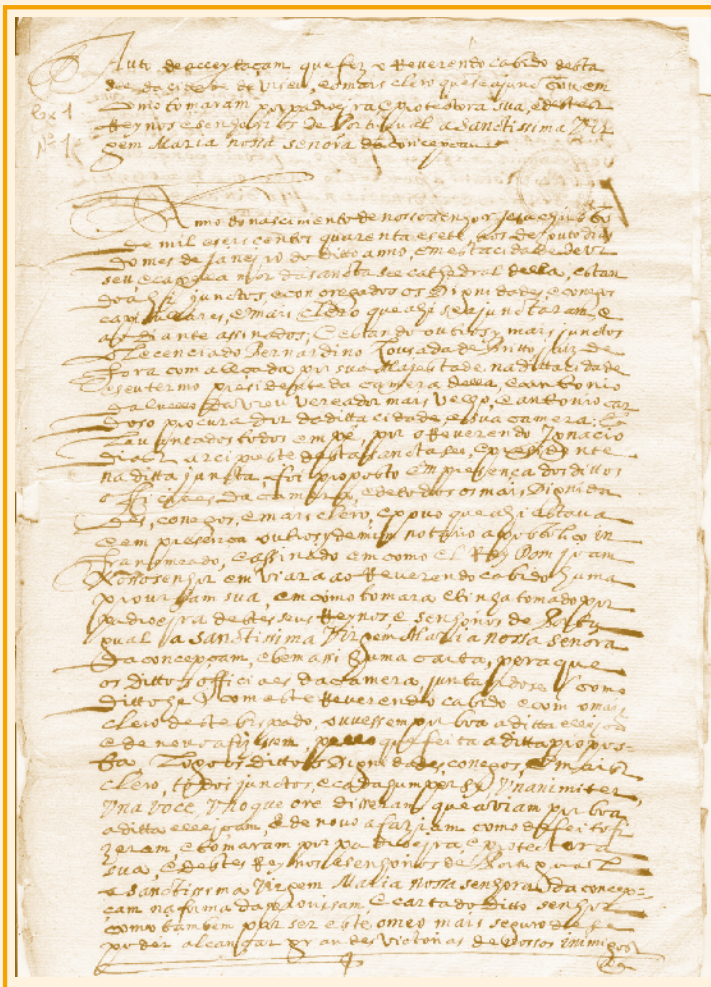 Auto de acceptaçam que fez o Reverendo Cabido desta
See da cidade de Viseu, e o mais clero que se ajuntou em
Como tomaram por padroejra e protectora sua, e destes
Reynos e senhorios de Portugual a Sanctissima Vir
gem Maria nossa senora da concepçam
Cx 1
Nº 1
Anno do nascimento de nosso senhor Jesu christo
de mil e seis centos quarenta e sete aos des outo dias
do mes de janejro do ditto anno, em esta cidade de Vi
seu, e capella mor da sancta see cathedral della, estan
do ahi junctos, e congregados os Dignidades, e conegos
capitullares, e mais clero que ahi se ajuntaram, e
ao diante assinados, e estando outrosy mais junctos
o Lecenciado Bernardino Lousada de Britto juiz de
fora com alçada por sua Majestade na ditta cidade
e seu termo presidente da camera della, e antonio
vereador mais velho, e antonio car
doso procurador da ditta cidade, e sua camera,
Levantados todos em pé, por o Reverendo Ignacio
arcipreste desta sancta see, e presidente
na ditta juncta, foi proposto em presença dos dittos
officiaes da camera, e de todos os mais Dignida
des, conegos, e mais clero, e povo que ahi estava
e em presença outrosy de mim notario apostolico in
fra nomeado, e assinado em como el Rey Dom joam
nosso senhor enviara ao Reverendo cabido huma
provisam sua, em como tomara e tinha tomado por
padroejra destes seus Reynos e senhorios de Portu
gual a Sanctissima Virgem Maria nossa senhora
da concepçam, e bem assi huma carta, pera que
os dittos officiaes da camera juntandose como
ditto he com este Reverendo cabido e com o mais
clero deste bispado, ouvessem por boa a ditta elleiçam
e de novo a fizessem, pello que feita a ditta propos-
ta, Logo os dittos Dignidades, conegos, e mais
clero, todos junctos, e cada hum per sy Unanimiter,
Una voce, Unoque ore disseram que aviam por boa
a ditta elleiçam, e de novo a faziam como de feito fi
zeram e tomaram por padroejra, e protectora
sua, e destes Reynos e senhorios de Portugual
a Sanctissima Virgem Maria nossa senhora da concep-
çam na forma da provisam, e carta do ditto senhor
como tambem por ser este o meo mais seguro de se
poder alcançar grandes victorias de nossos inimigos